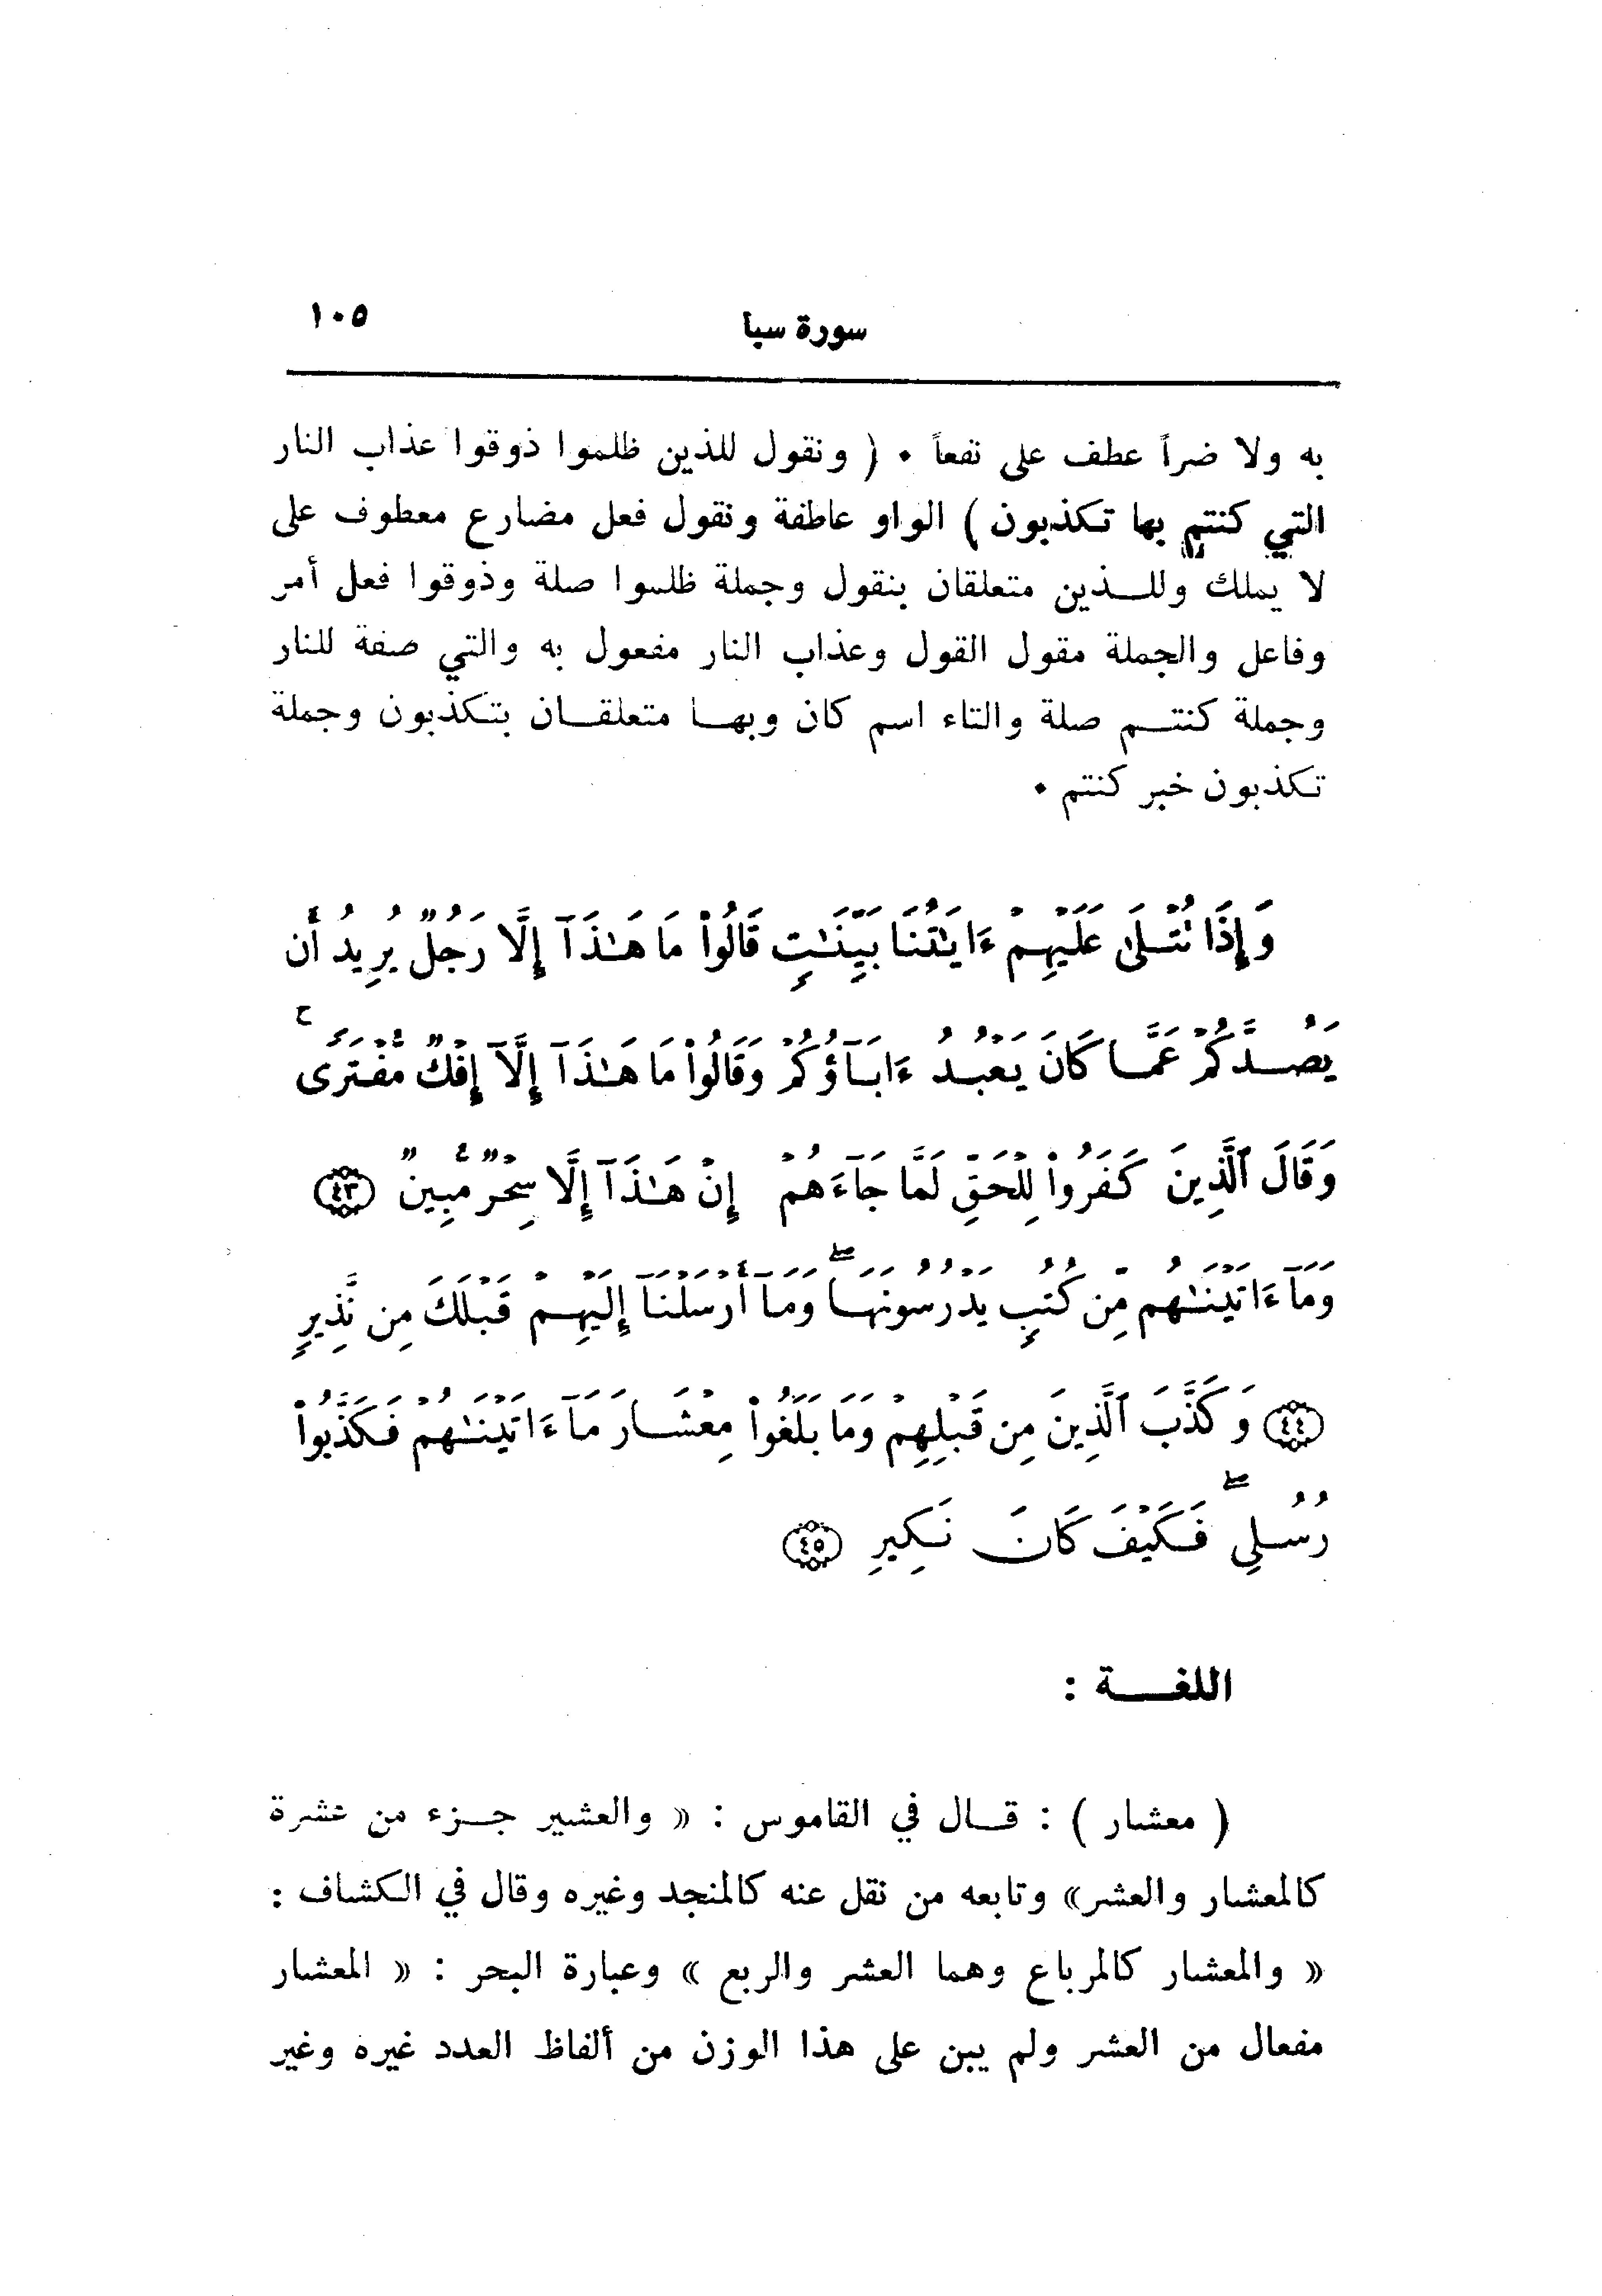 سورة سبأ ١٠٥
به ولا ضراً عطف على نفعاً ٠ ( ونقول للذين ظلموا ذوقوا عذاب النار
التي كنتم بها تكذبون ) الواو عاطفة ونقول فعل مضارع معطوف على
لا يملك وللـذين متعلقان بنقول وجملة ظلموا صلة وذوقوا فعل أمر
وفاعل والجملة مقول القول وعذاب النار مفعول به والتي صفة للنار
وجملة كنتـم صلة والتاء اسم كان وبهـا متعلقـان بتكذبون وجملة
تكذبون خبر كنتم ٠
وَإِذَا تُتْلَىٰ عَلَيْهِمْ ءَايَٰتُنَا بَيِّنَٰتٍ قَالُوا۟ مَا هَٰذَآ إِلَّا رَجُلٌ يُرِيدُ أَن
يَصُدَّكُمْ عَمَّا كَانَ يَعْبُدُ ءَابَآؤُكُمْ وَقَالُوا۟ مَا هَٰذَآ إِلَّآ إِفْكٌ مُّفْتَرًى ۚ
وَقَالَ ٱلَّذِينَ كَفَرُوا۟ لِلْحَقِّ لَمَّا جَآءَهُمْ إِنْ هَٰذَآ إِلَّا سِحْرٌ مُّبِينٌ ﴿٤٣﴾
وَمَآ ءَاتَيْنَٰهُم مِّن كُتُبٍ يَدْرُسُونَهَا ۖ وَمَآ أَرْسَلْنَآ إِلَيْهِمْ قَبْلَكَ مِن نَّذِيرٍ
﴿٤٤﴾ وَكَذَّبَ ٱلَّذِينَ مِن قَبْلِهِمْ وَمَا بَلَغُوا۟ مِعْشَارَ مَآ ءَاتَيْنَٰهُمْ فَكَذَّبُوا۟
رُسُلِى ۖ فَكَيْفَ كَانَ نَكِيرِ ﴿٤٥﴾
اللغـة :
( معشار ) : قـال في القاموس : « والعشير جـزء من عشرة
كالمعشار والعشر» وتابعه من نقل عنه كالمنجد وغيره وقال في الكشاف :
« والمعشار كالمرباع وهما العشر والربع » وعبارة البحر : « المعشار
مفعال من العشر ولم يبن على هذا الوزن من ألفاظ العدد غيره وغير